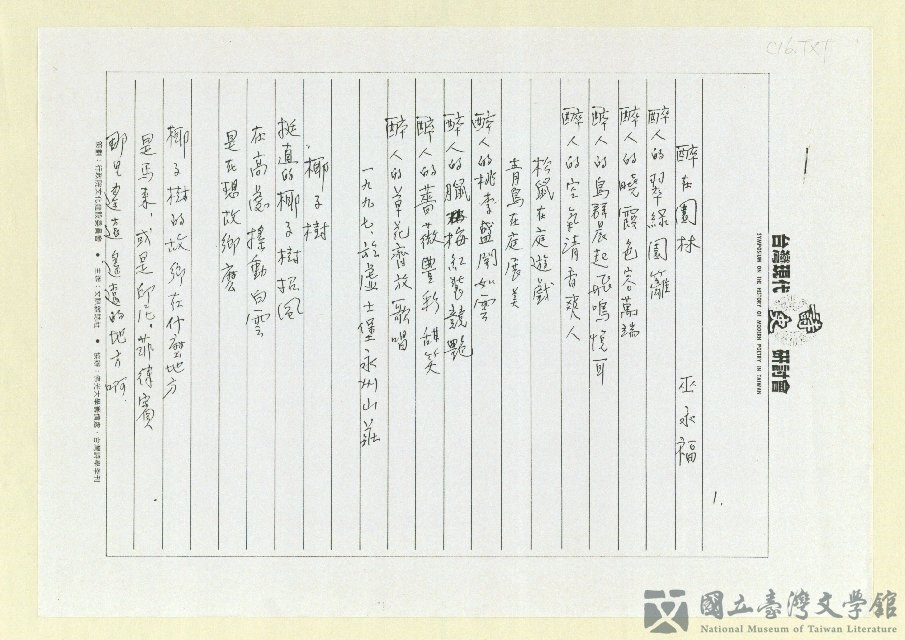 C16.TXT
台灣現代詩史研討會
SYMPOSIUM ON THE HISTORY OF MODERN POETRY IN TAIWAN
1.
醉在園林　巫永福
醉人的翠綠園籬
醉人的曉霞色容萬端
醉人的鳥群晨起飛鳴悅耳
醉人的空氣清香爽人
松鼠在庭遊戲
青鳥在庭展美
醉人的桃李盛開如雲
醉人的臘梅紅裝競艷
醉人的薔薇豐彩甜笑
醉人的草花齊放歌唱
一九九七、於虛士堡永州山莊
椰子樹
挺直的椰子樹招風
在高處搖動白雲
是在想故鄉麼
椰子樹的故鄉在什麼地方
是馬來，或是印尼，菲律賓
那是遙遠遙遠的地方啊
策劃：行政院文化建設委員會
國立臺灣文學館
National Museum of Taiwan Literature